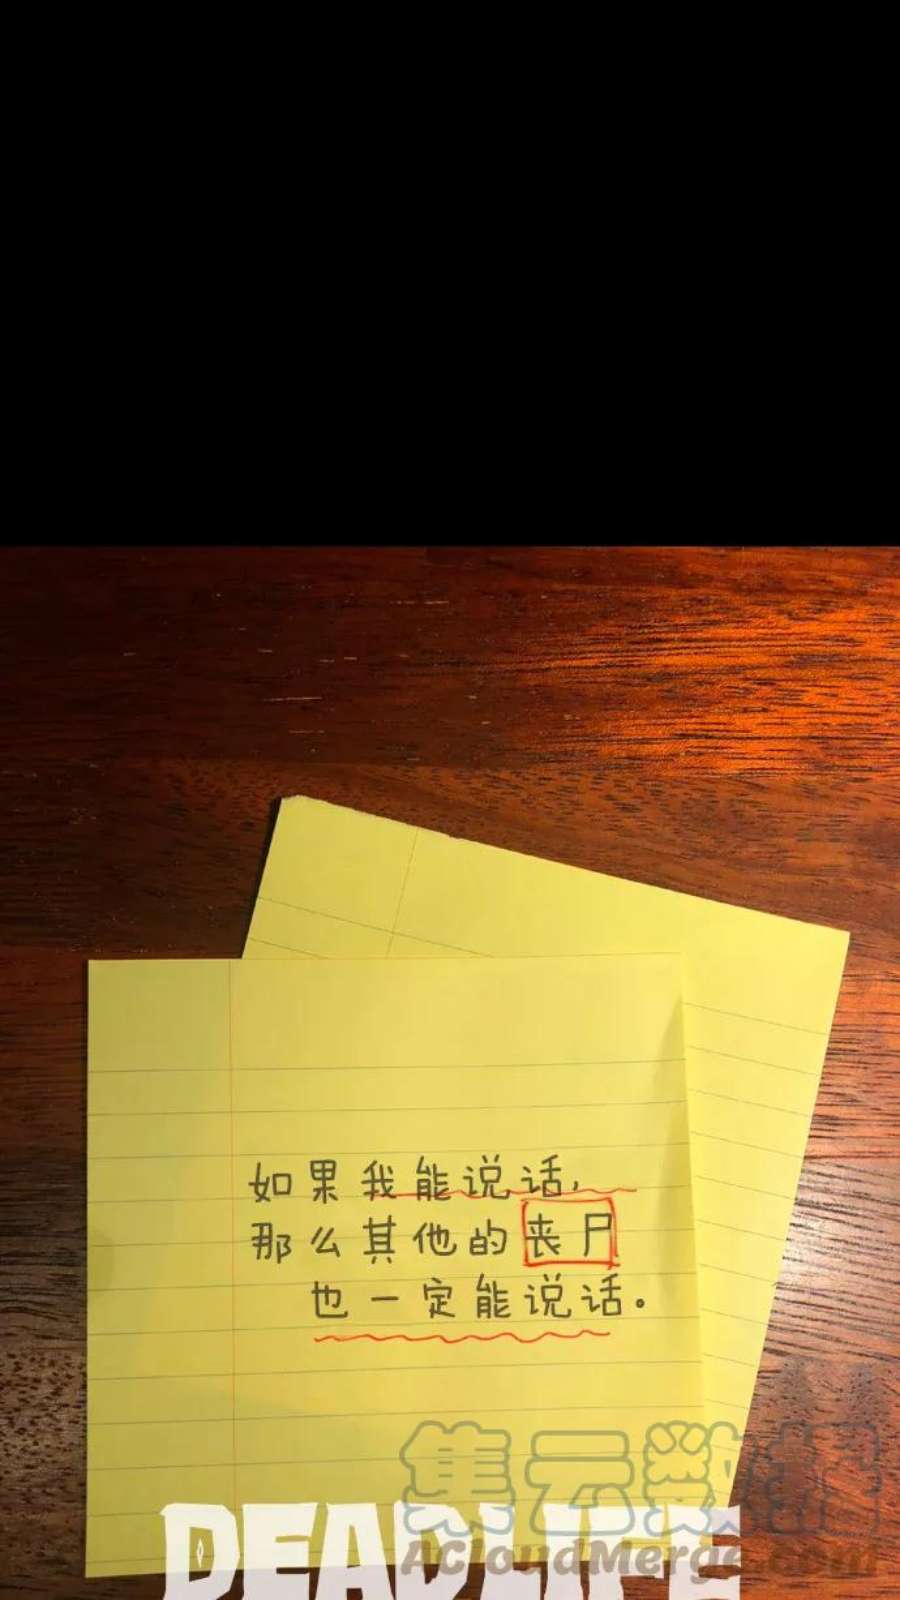 如果我能说话,
那么其他的丧尸
也一定能说话。
集云数据
ACloudMerge.com
DEADLIFE